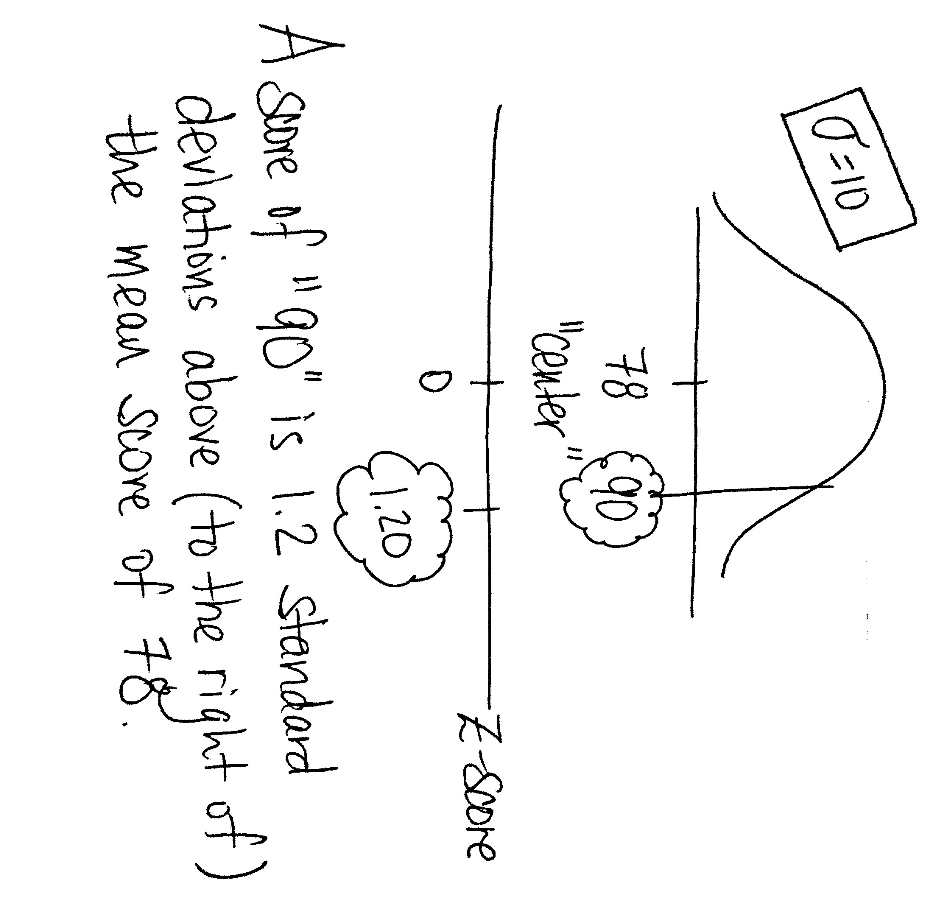 σ=10
78
90
"center"
Z-score
0
1.20
A score of "90" is 1.2 standard
deviations above (to the right of)
the mean score of 78.